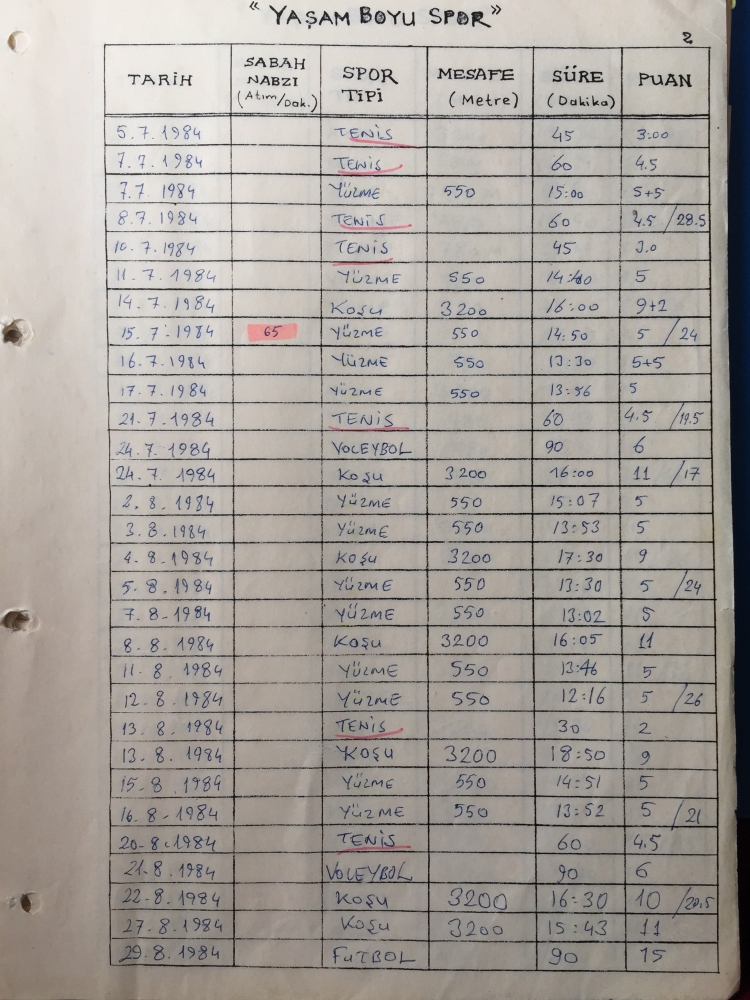 "YAŞAM BOYU SPOR"
2
TARİH SABAH NABZI (Atım/Dak.) SPOR TİPİ MESAFE (Metre) SÜRE (Dakika) PUAN
5.7.1984 TENİS 45 3.00
7.7.1984 TENİS 60 4.5
7.7.1984 YÜZME 550 15:00 5+5
8.7.1984 TENİS 60 4.5 /28.5
10.7.1984 TENİS 45 3.0
11.7.1984 YÜZME 550 14:40 5
14.7.1984 KOŞU 3200 16:00 9+2
15.7.1984 65 YÜZME 550 14:50 5 /24
16.7.1984 YÜZME 550 13:30 5+5
17.7.1984 YÜZME 550 13:56 5
21.7.1984 TENİS 60 4.5 /19.5
24.7.1984 VOLEYBOL 90 6
24.7.1984 KOŞU 3200 16:00 11 /17
2.8.1984 YÜZME 550 15:07 5
3.8.1984 YÜZME 550 13:53 5
4.8.1984 KOŞU 3200 17:30 9
5.8.1984 YÜZME 550 13:30 5 /24
7.8.1984 YÜZME 550 13:02 5
8.8.1984 KOŞU 3200 16:05 11
11.8.1984 YÜZME 550 13:46 5
12.8.1984 YÜZME 550 12:16 5 /26
13.8.1984 TENİS 30 2
13.8.1984 KOŞU 3200 18:50 9
15.8.1984 YÜZME 550 14:51 5
16.8.1984 YÜZME 550 13:52 5 /21
20.8.1984 TENİS 60 4.5
21.8.1984 VOLEYBOL 90 6
22.8.1984 KOŞU 3200 16:30 10 /20.5
27.8.1984 KOŞU 3200 15:43 11
29.8.1984 FUTBOL 90 15